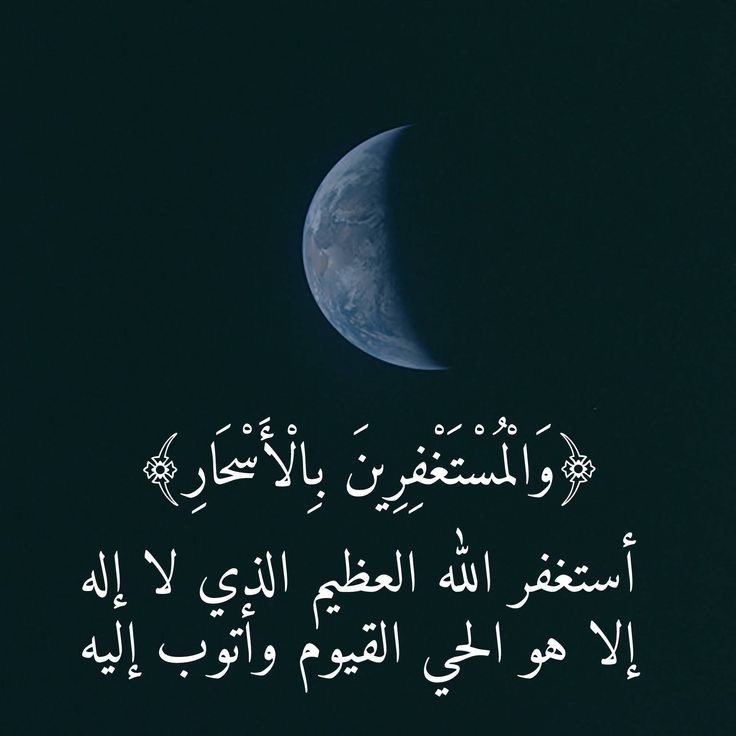 ﴿وَالْمُسْتَغْفِرِينَ بِالْأَسْحَارِ﴾
أستغفر الله العظيم الذي لا إله
إلا هو الحي القيوم وأتوب إليه